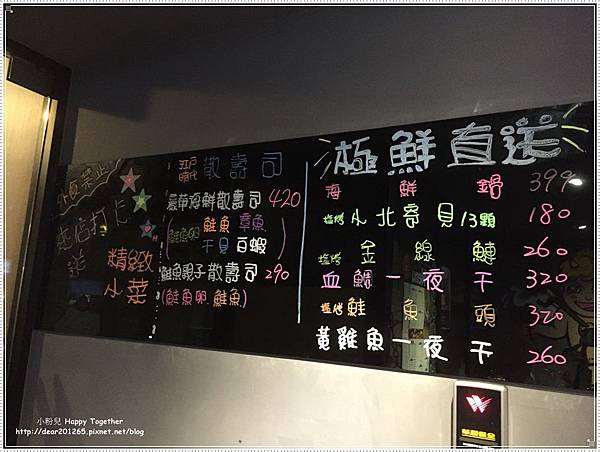 外食禁止
打卡
送
精緻
小菜
江戶
時代
散壽司
豪華海鮮散壽司 420
鮭魚卵 鮭魚 章魚
干貝 甜蝦
鮭魚親子散壽司 290
(鮭魚卵.鮭魚)
極鮮直送
海鮮鍋 399
塩烤 小北寄貝/3顆 180
塩烤 金線鰱 260
血鯛一夜干 320
塩烤 鮭魚頭 320
黃雞魚一夜干 260
小粉兒 Happy Together
http://dear201265.pixnet.net/blog